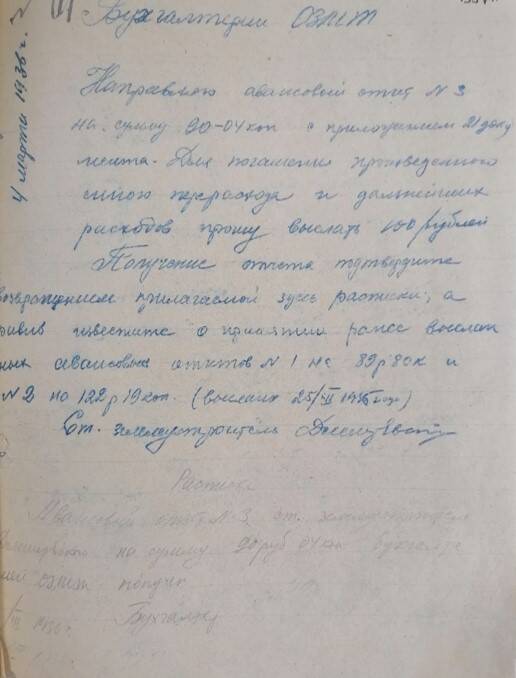 4 марта 1936 г. N
Бухгалтерии ОЗЕТ
Направляю авансовый отчет N 3
на сумму 90-04 коп с приложением 21 доку
мента. Для погашения произведенного
мною перерасхода и дальнейших
расходов прошу выслать 100 рублей
Получение отчета подтвердите
возвращением прилагаемой здесь расписки, а
известите о принятии ранее выслан
ных авансовых отчетов N 1 на 89 р 80 к и
N 2 на 122 р 19 коп. (высланы 25/ 1936 года)
Ст. землеустроитель
Расписка
Авансовый отчет N 3 ст. землеустроителя
на сумму 90 руб 04 коп бухгалте
рией получен
/III 1936 г. Бухгалтер